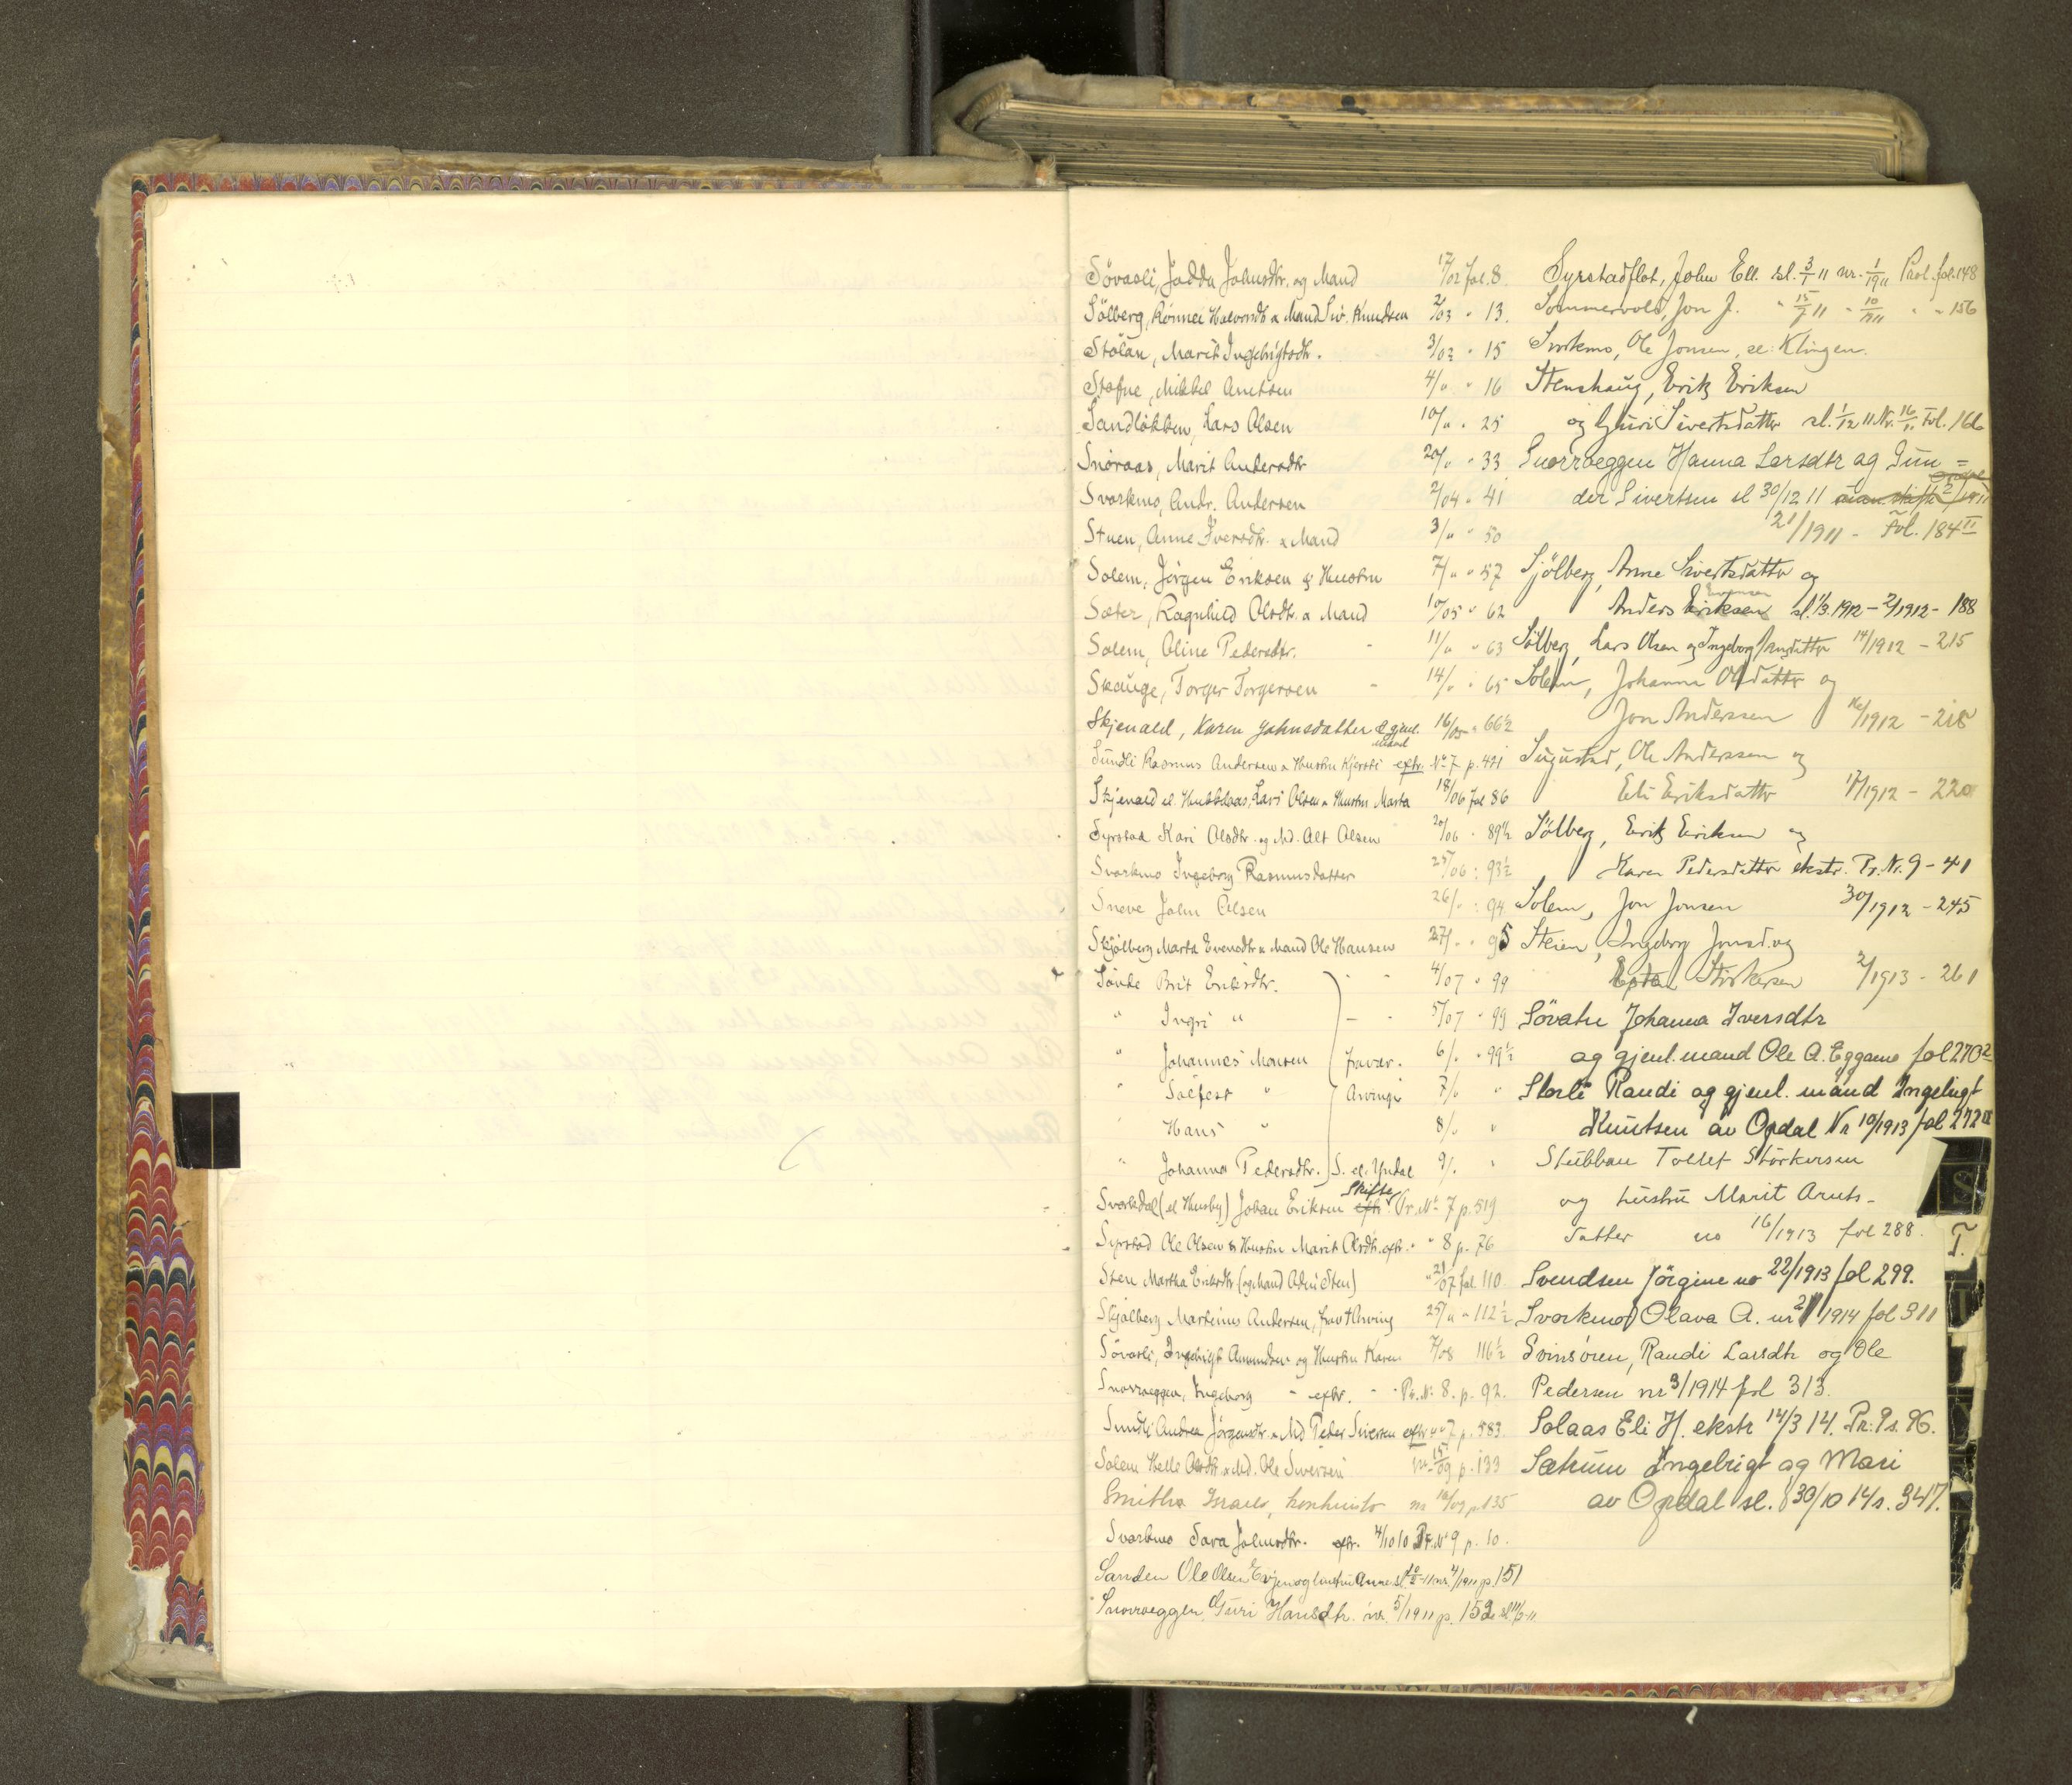 Sövasli, Jadda Johnsdtr. og Mand 17/02 fol. 8.
Sölberg, Rönnei Halvorsdt & Mand Siv. Knudsen 2/03 " 13.
Stölan, Marit Ingebrigtsdtr. 3/03 " 15
Stofne, Mikkel Arntsen 4/" " 16
Sandlökken, Lars Olsen 10/" " 25
Snöraas, Marit Andersdtr 20/" " 33
Svorkmo, Andr. Andersen 2/04 " 41
Stuen, Anne Iversdtr. & Mand 3/" " 50
Solem, Jörgen Eriksen & Hustru 7/" " 57
Sæter, Ragnhild Olsdtr. & Mand 10/05 " 62
Solem, Oline Pedersdtr. - 11/" " 63
Skauge, Torger Torgersen - 14/" " 65
Skjenald, Karen Johnsdatter & gjenl. mand 16/05 " 66½
Sundli Rasmus Andersen & Hustru Kjersti eftr. No 7 p. 421
Skjenald el. Hubbdaas, Lars Olsen & Hustru Marta 18/06 fol 86
Syrstad Kari Olsdtr. og Md. Alt Olsen 20/06 " 89½
Svorkmo Ingeborg Rasmusdatter 25/06 : 93½
Sneve John Olsen 26/" : 94
Skjölberg Marta Evensdtr & Mand Ole Hansen 27/" " 95
Sövde Brit Eriksdtr. " " 4/07 " 99
" Ingri " - - 5/07 " 99
" Johannes Monsen fravær. 6/" " 99½
" Solfest " Arvinger 7/" "
" Hans " 8/" "
" Johanna Pedersdtr. S. el. Yndal 9/" "
Svorkdal (el Husby) Johan Eriksen eftr. Skifte Pr. No 7 p. 519
Syrstad Ole Olsen & Hustru Marit Olsdtr. eftr. " " 8 p. 76
Sten Martha Eriksdtr (og Mand Ole Sten) " 21/07 fol 110
Skjölberg Martinus Andersen, frav. Arving 25/" " 112½
Sövasli, Ingebrigt Amundsen og Hustru Karen 7/08 116½
Snorroeggen, Ingeborg - eftr. - Pr. No 8. p. 92.
Sundli Andrea Jörgensdtr. & Md Peder Siversen eftr " 7 p. 583
Solem Kelle Olsdtr. & Md. Ole Siversen nr. 15/09 p. 133
Smith Israels, nr 18/09 p. 135
Svorkmo Sara Johnsdtr. eftr. 4/10 10 Pr. No 9 p. 10.
Sanden Ole Olsen Evjen og hustru Anne sl. 10/2-11 nr 4/1911 p. 151
Snorroeggen Guri Hansdtr. nr. 5/1911 p. 152 sl 11/3-11
Syrstadflot, John Ell. sl. 3/7 11 nr. 1/1911 Prot. fol. 148
Sommervold, Jon J. " 15/7 11 " 10/1911 " " 156
Svorkmo, Ole Jonsen, se: Klingen.
Stenshaug, Erik Eriksen
og Guri Sivertsdatter sl. 1/12 11 Nr. 16/11 Fol. 166
Snorroeggen Hanna Larsdtr og Gun=
der Sivertsen sl 30/12 11
21/1911 - Fol. 184 II
Sjölberg, Anne Sivertsdatter og
Anders Eriksen Evensen sl. 1/3. 1912 - 2/1912 - 188
Sölberg, Lars Olsen og Ingeborg Arnsdatter 14/1912 - 215
Solem, Johanna Olsdatter og
Jon Anderssen 16/1912 - 218
Sugustad, Ole Anderssen og
Eli Eriksdatter 17/1912 - 220
Sölberg, Erik Eriksen og
Karen Pedersdatter ekstr. Pr. Nr. 9 - 41
Solem, Jon Jonsen 30/1912 - 245
Steien, Ingeborg Jonsd. og
Esten Störkersen 2/1913 - 261
Sövatn Johanna Iversdtr
og gjenl. mand Ole O. Eggamo fol 270 2
Storli Randi og gjenl. mand Ingebrigt
Knutsen av Opdal Nr 10/1913 fol 272
Stubban Tollef Störkersen
og hustru Marit Arnts-
datter no 16/1913 fol 288.
Svendsen Jörgine no 22/1913 fol 299.
Svorkmo Olava A. nr 2/1914 fol 311
Svinsören, Randi Larsdtr og Ole
Pedersen nr 3/1914 fol 313.
Solaas Eli H. ekstr 14/3 14. Pr. 9 s. 96.
Sætrum Ingebrigt og Mari
av Opdal sl. 30/10 14 s. 347.
S
T.